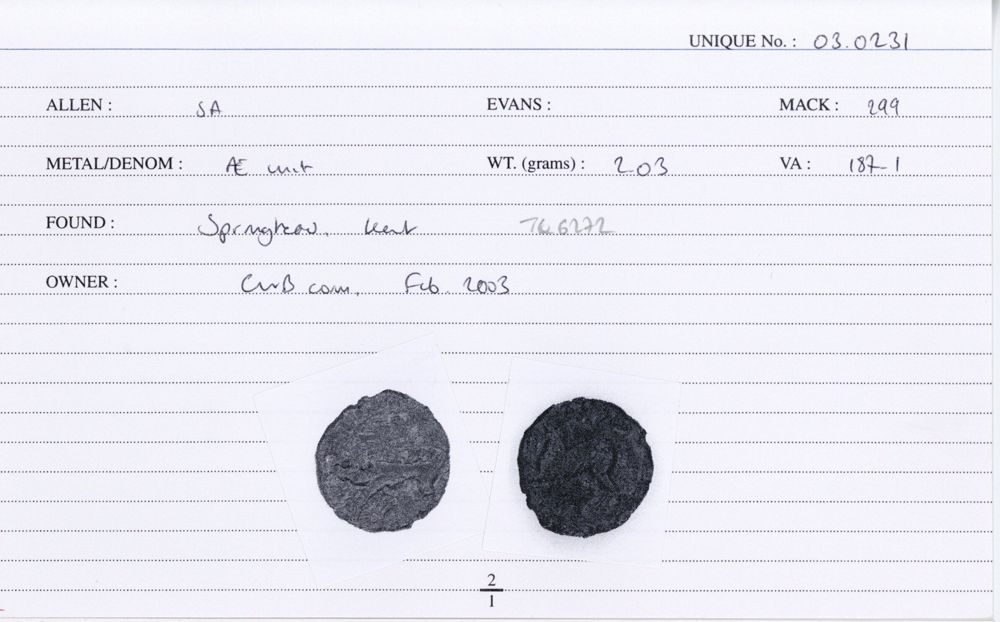 UNIQUE No. : 03.0231
ALLEN : SA EVANS : MACK : 299
METAL/DENOM : Æ unit WT. (grams) : 2.03 VA : 187-1
FOUND : Springhead, Kent TQ6272
OWNER : CWB com. Feb. 2003
2
1